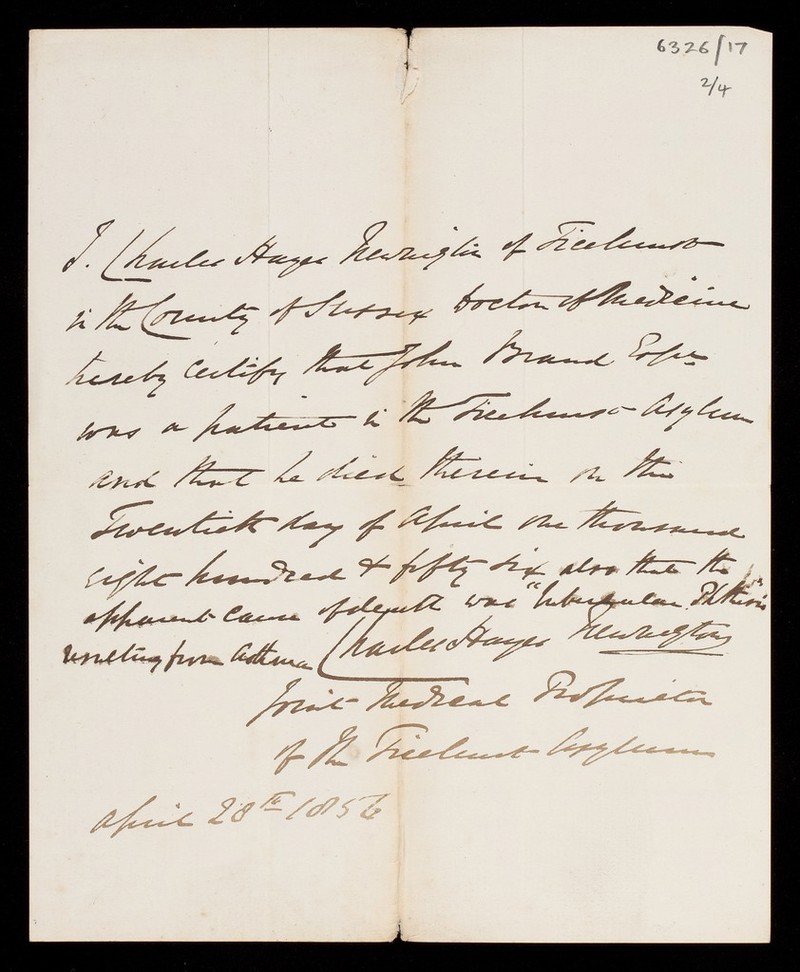 6326/17
2/4
I. Charles Hayes Newington of Ticehurst
in the County of Sussex Doctor of Medicine
hereby certify that John Brand Esqre
was a patient in the Ticehurst Asylum
and that he died therein on the
Twentieth day of April one thousand
eight hundred & fifty six also that the
apparent cause of death was "Tubercular Phthisis"
resulting from Asthma Charles Hayes Newington
Joint Medical Proprietor
of the Ticehurst Asylum
April 28th 1856